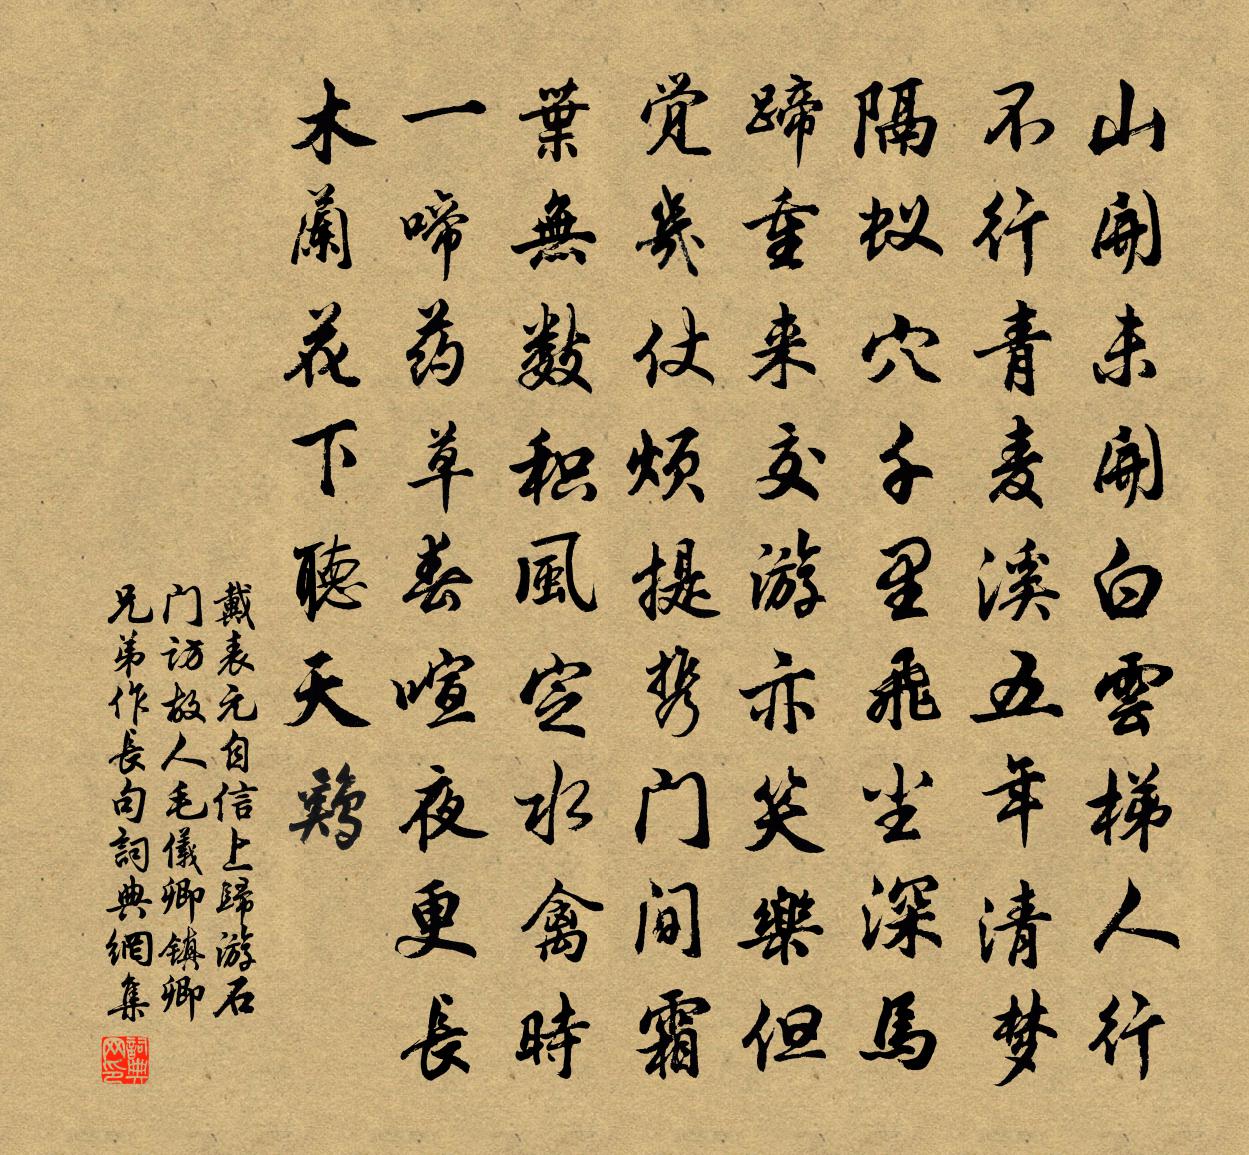 山開未開白雲梯人行
不行青麦溪五年清梦
隔蚁穴千里飛尘深馬
蹄重来交游亦笑樂但
觉幾仗烦提携门间霜
葉無數积風定水禽時
一啼药草春喧夜更長
木蘭花下聽天鷄
戴表元自信上歸游石
门访故人毛儀卿鎮卿
兄弟作長句詞典網集
詞典网印